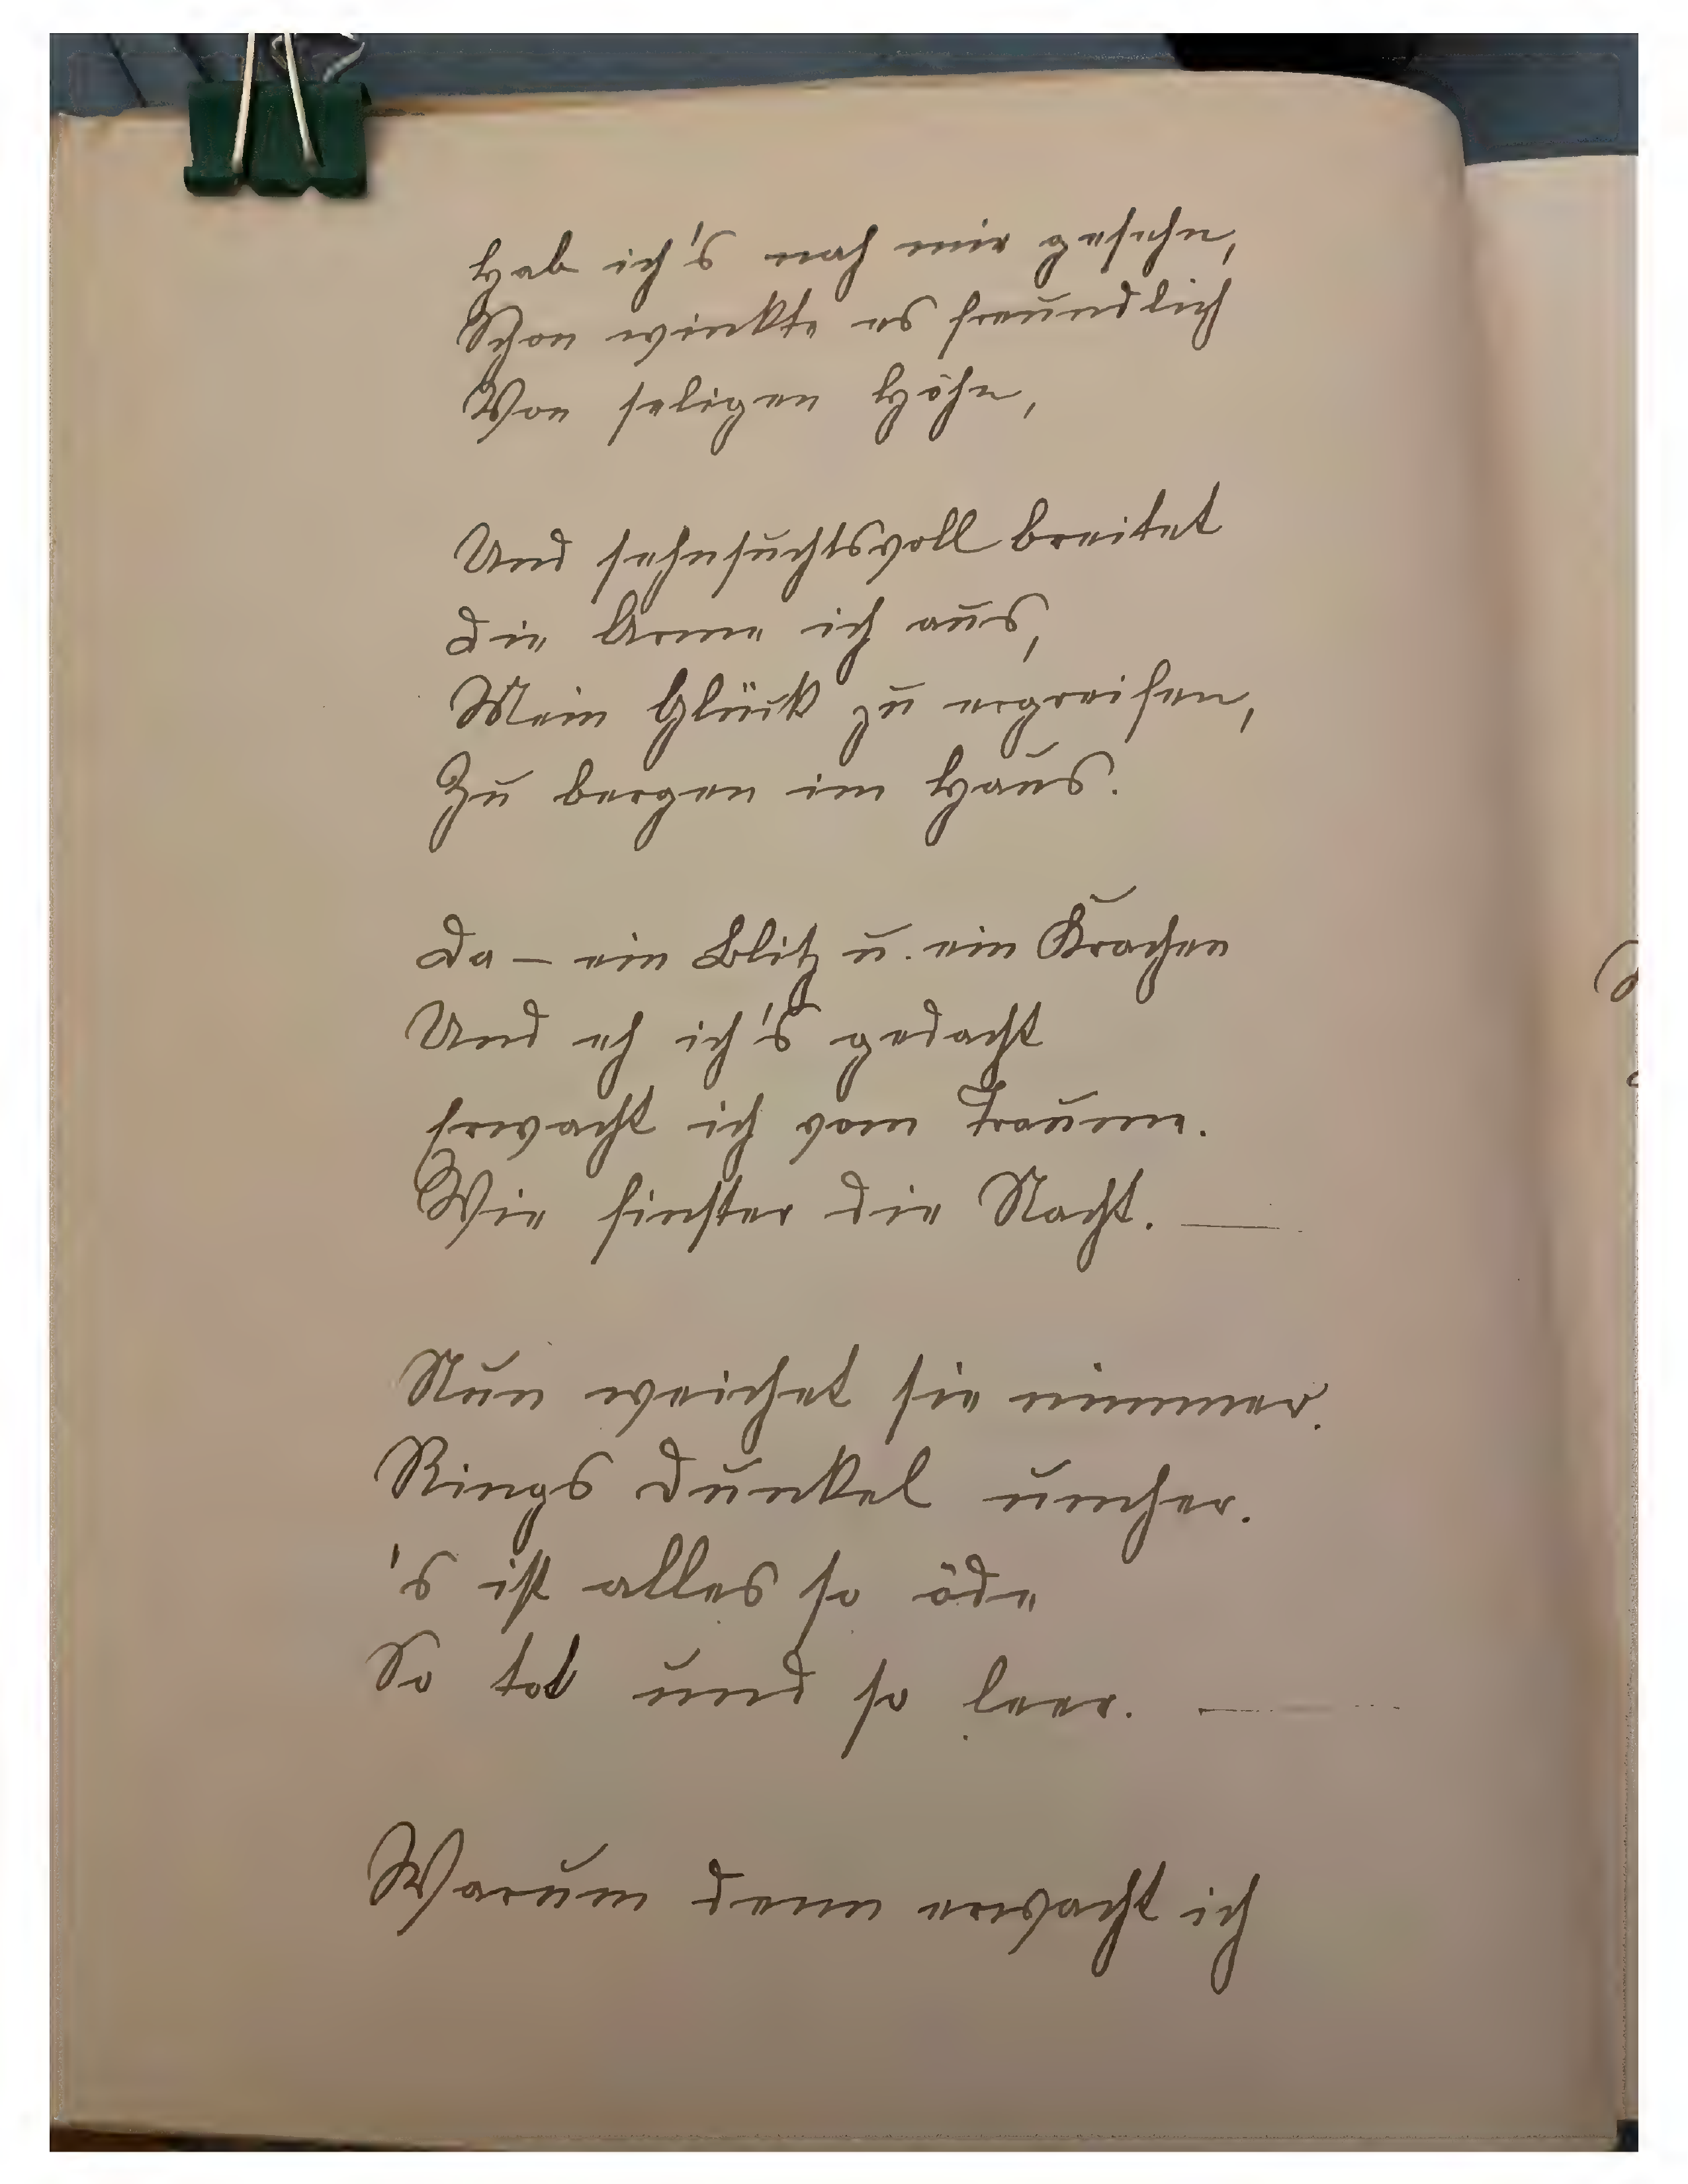 Hab ich's nah mir gesehn,
Schon winkte es freundlich
Von seligen Höhn,
Und sehnsuchtsvoll breitet
die Arme ich aus,
Mein Glück zu ergreifen,
Zu bergen im Haus.
Da – ein Blitz u. ein Krachen
Und eh ich's gedacht
Erwacht ich vom Traume.
Wie finster die Nacht. —
Nun weichet sie nimmer.
Rings dunkel umher.
's ist alles so öde
So tot und so leer. —
Warum denn erwacht ich